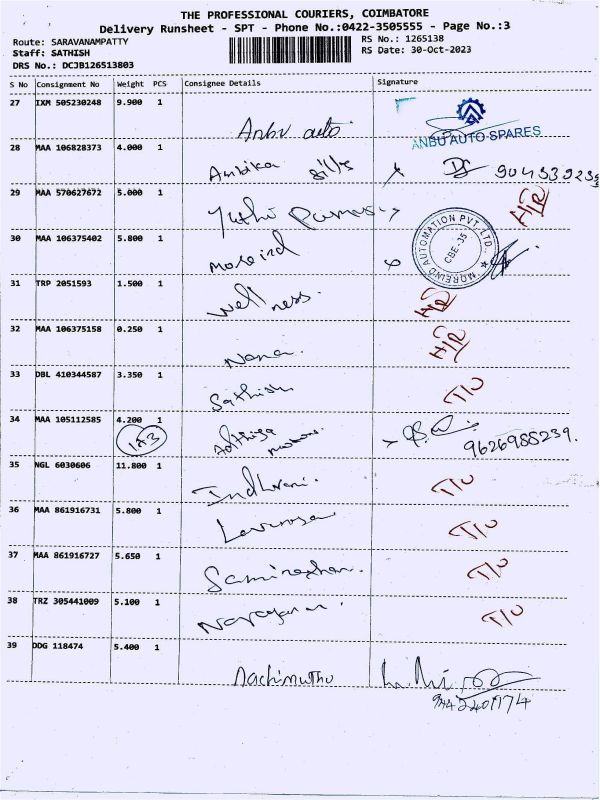 THE PROFESSIONAL COURIERS, COIMBATORE
Delivery Runsheet - SPT - Phone No.:0422-3505555 - Page No.:3
Route: SARAVANAMPATTY RS No.: 1265138
Staff: SATHISH RS Date: 30-Oct-2023
DRS No.: DCJB126513803
S No Consignment No Weight PCS Consignee Details Signature
27 IXM 505230248 9.900 1
Anbu auto. ANBU AUTO SPARES
28 MAA 106828373 4.000 1
Ambika
29 MAA 570627672 5.000 1
H/R
30 MAA 106375402 5.800 1
Moreind MOREIND AUTOMATION PVT. LTD. CBE-35
31 TRP 2051593 1.500 1
Wellness. H/R
32 MAA 106375158 0.250 1
Nana. H/R
33 DBL 410344587 3.350 1
Sathish T/U
34 MAA 105112585 4.200 1
Adthiya 9626988239.
35 NGL 6030606 11.800 1
Indhrani. T/U
36 MAA 861916731 5.800 1
T/U
37 MAA 861916727 5.650 1
T/U
38 TRZ 305441009 5.100 1
Narayanan. T/U
39 DDG 118474 5.400 1
Nachimuthu